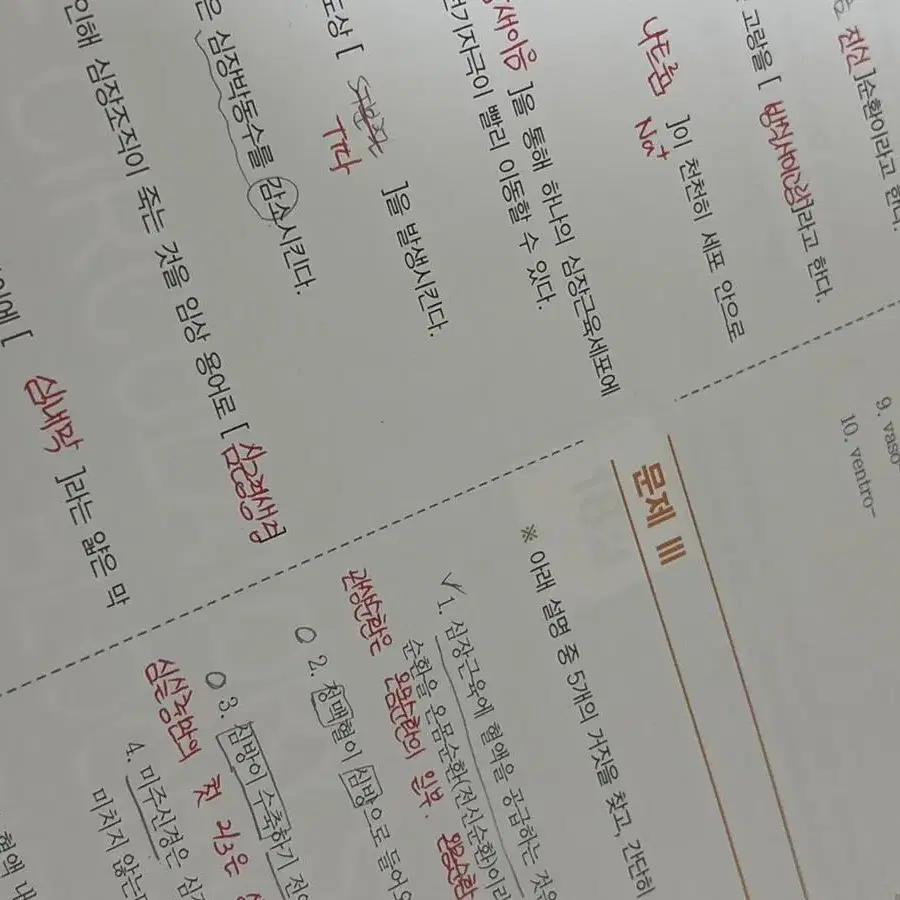 전신]순환이라고 한다.
고랑을 [ 방실사이고랑]라고 한다.
나트륨 Na+ ]이 천천히 세포 안으로
새이음 ]을 통해 하나의 심장근육세포에
전기자극이 빨리 이동할 수 있다.
도상 [ T파 ]을 발생시킨다.
은 심장박동수를 감소시킨다.
인해 심장조직이 죽는 것을 임상 용어로 [ 심근경색증
[ 심내막 ]라는 얇은 막
9. vaso-
10. ventro-
문제 III
※ 아래 설명 중 5개의 거짓을 찾고, 간단히
✓ 1. 심장근육에 혈액을 공급하는 것은
순환을 온몸순환(전신순환)이라
관상순환은 온몸순환의 일부. 온몸순환
○ 2. 정맥혈이 심방으로 들어오
○ 3. 심방이 수축하기 전
심실충만의 첫
4. 미주신경은 심
미치지 않는다
혈액 내